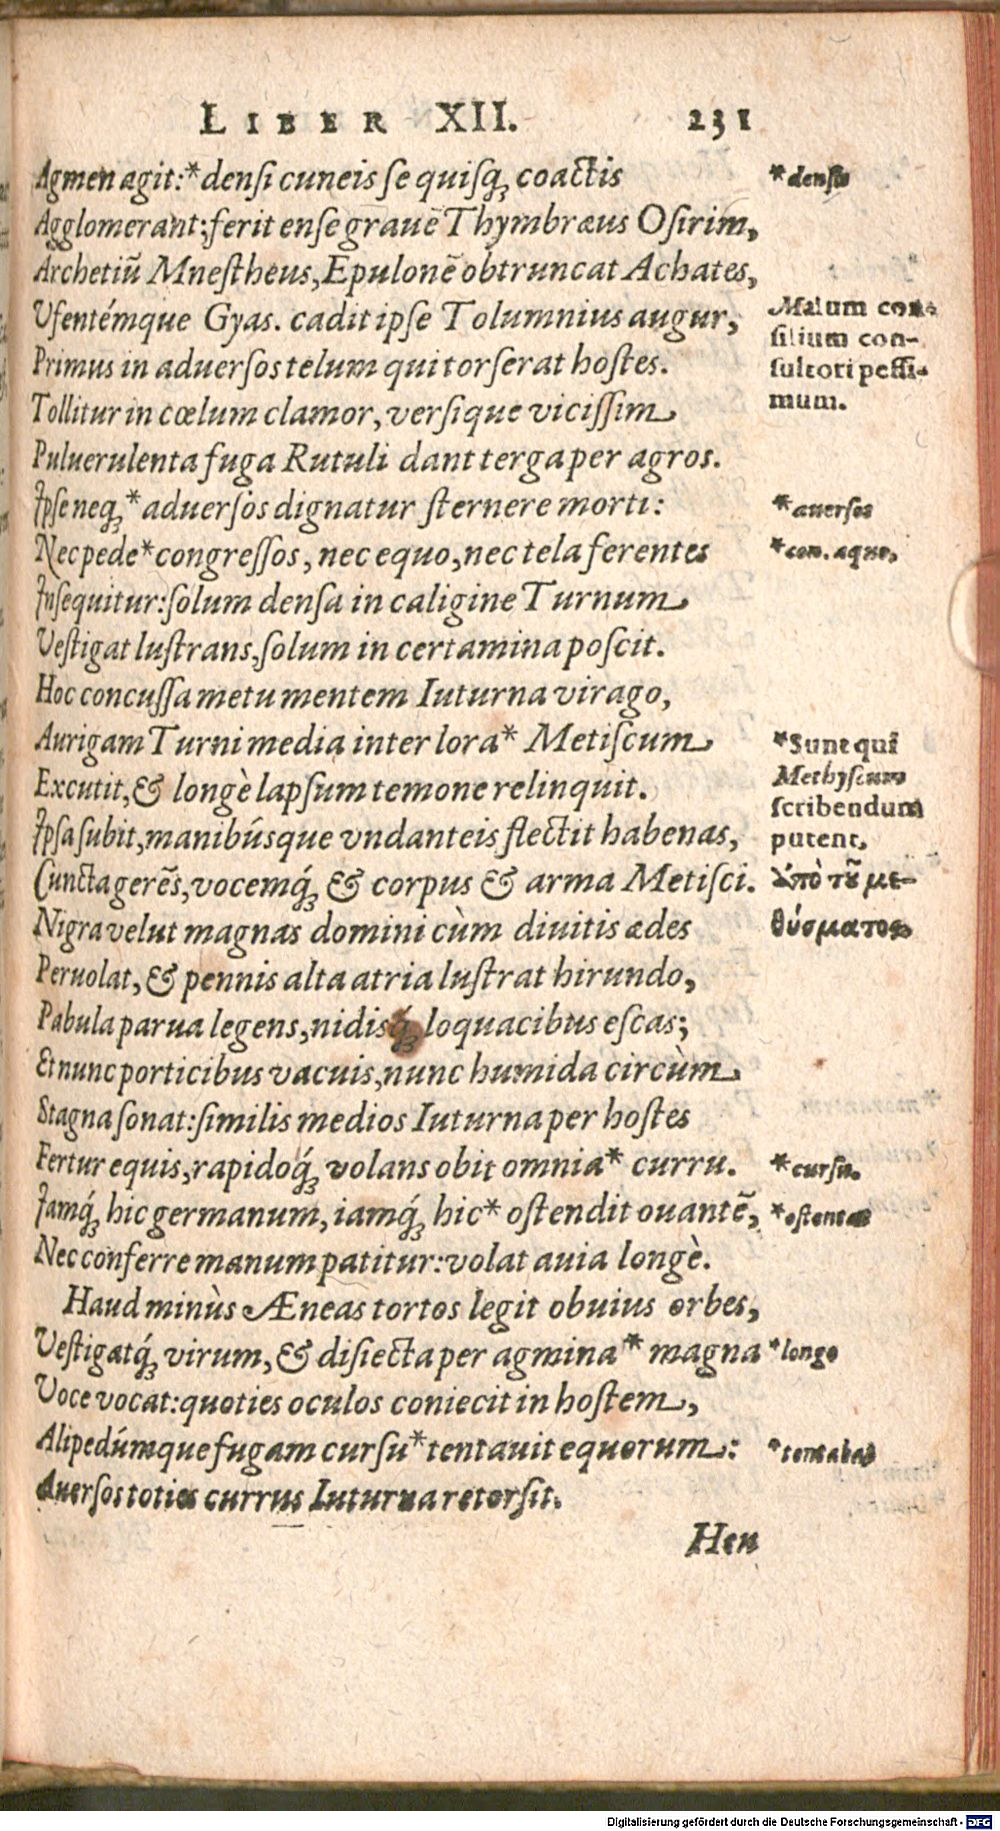 LIBER XII. 231
Agmen agit:* densi cuneis se quisq́ꝫ coactis
*densis
Agglomerant: ferit ense grauē Thymbræus Osirim,
Archetiū Mnestheus, Epulonē obtruncat Achates,
Vfentémque Gyas. cadit ipse Tolumnius augur,
Primus in aduersos telum qui torserat hostes.
Malum con-
silium con-
sultori pessi-
mum.
Tollitur in cœlum clamor, versique vicissim
Puluerulenta fuga Rutuli dant terga per agros.
Ipse neqꝫ * aduersos dignatur sternere morti:
*auersos
Nec pede* congressos, nec equo, nec tela ferentes
*con. æquo.
Insequitur: solum densa in caligine Turnum
Vestigat lustrans, solum in certamina poscit.
Hoc concussa metu mentem Iuturna virago,
Aurigam Turni media inter lora* Metiscum
*Sunt qui
Methyscum
scribendum
putent,
ἀπὸ τȣ͂ με-
θύσματος
Excutit, & longè lapsum temone relinquit.
Ipsa subit, manibúsque vndanteis flectit habenas,
Cuncta gerēs, vocemq́ꝫ & corpus & arma Metisci.
Nigra velut magnas domini cùm diuitis ædes
Peruolat, & pennis alta atria lustrat hirundo,
Pabula parua legens, nidisq́ꝫ loquacibus escas;
Et nunc porticibus vacuis, nunc humida circùm
Stagna sonat: similis medios Iuturna per hostes
Fertur equis, rapidoq́ꝫ volans obit omnia* curru.
*cursu.
Iamq́ꝫ hic germanum, iamq́ꝫ hic* ostendit ouantē,
*ostentat
Nec conferre manum patitur: volat auia longè.
Haud minùs Æneas tortos legit obuius orbes,
Vestigatq́ꝫ virum, & disiecta per agmina* magna
*longe
Voce vocat: quoties oculos coniecit in hostem,
Alipedúmque fugam cursu* tentauit equorum:
*tentabat
Auersos toties currus Iuturna retorsit.
Heu
Digitalisierung gefördert durch die Deutsche Forschungsgemeinschaft - DFG